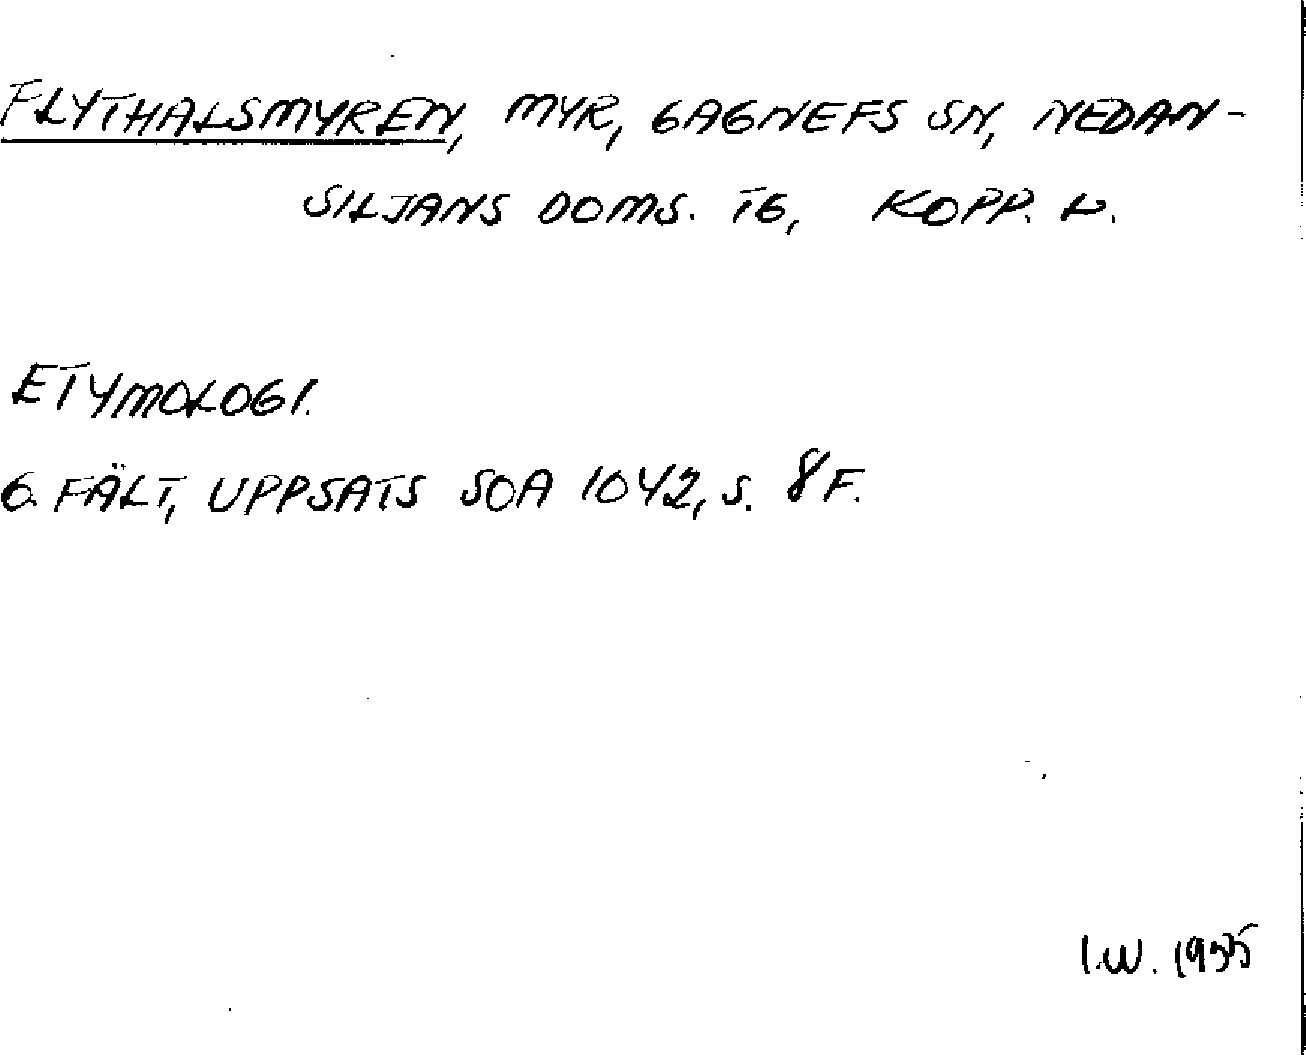 FLYTHALSMYREN, MYR, GAGNEFS SN, NEDAN-
SILJANS DOMS. TG, KOPP. L.
ETYMOLOGI.
G. FÄLT, UPPSATS SOA 1042, S. 8 F.
I.W. 1955